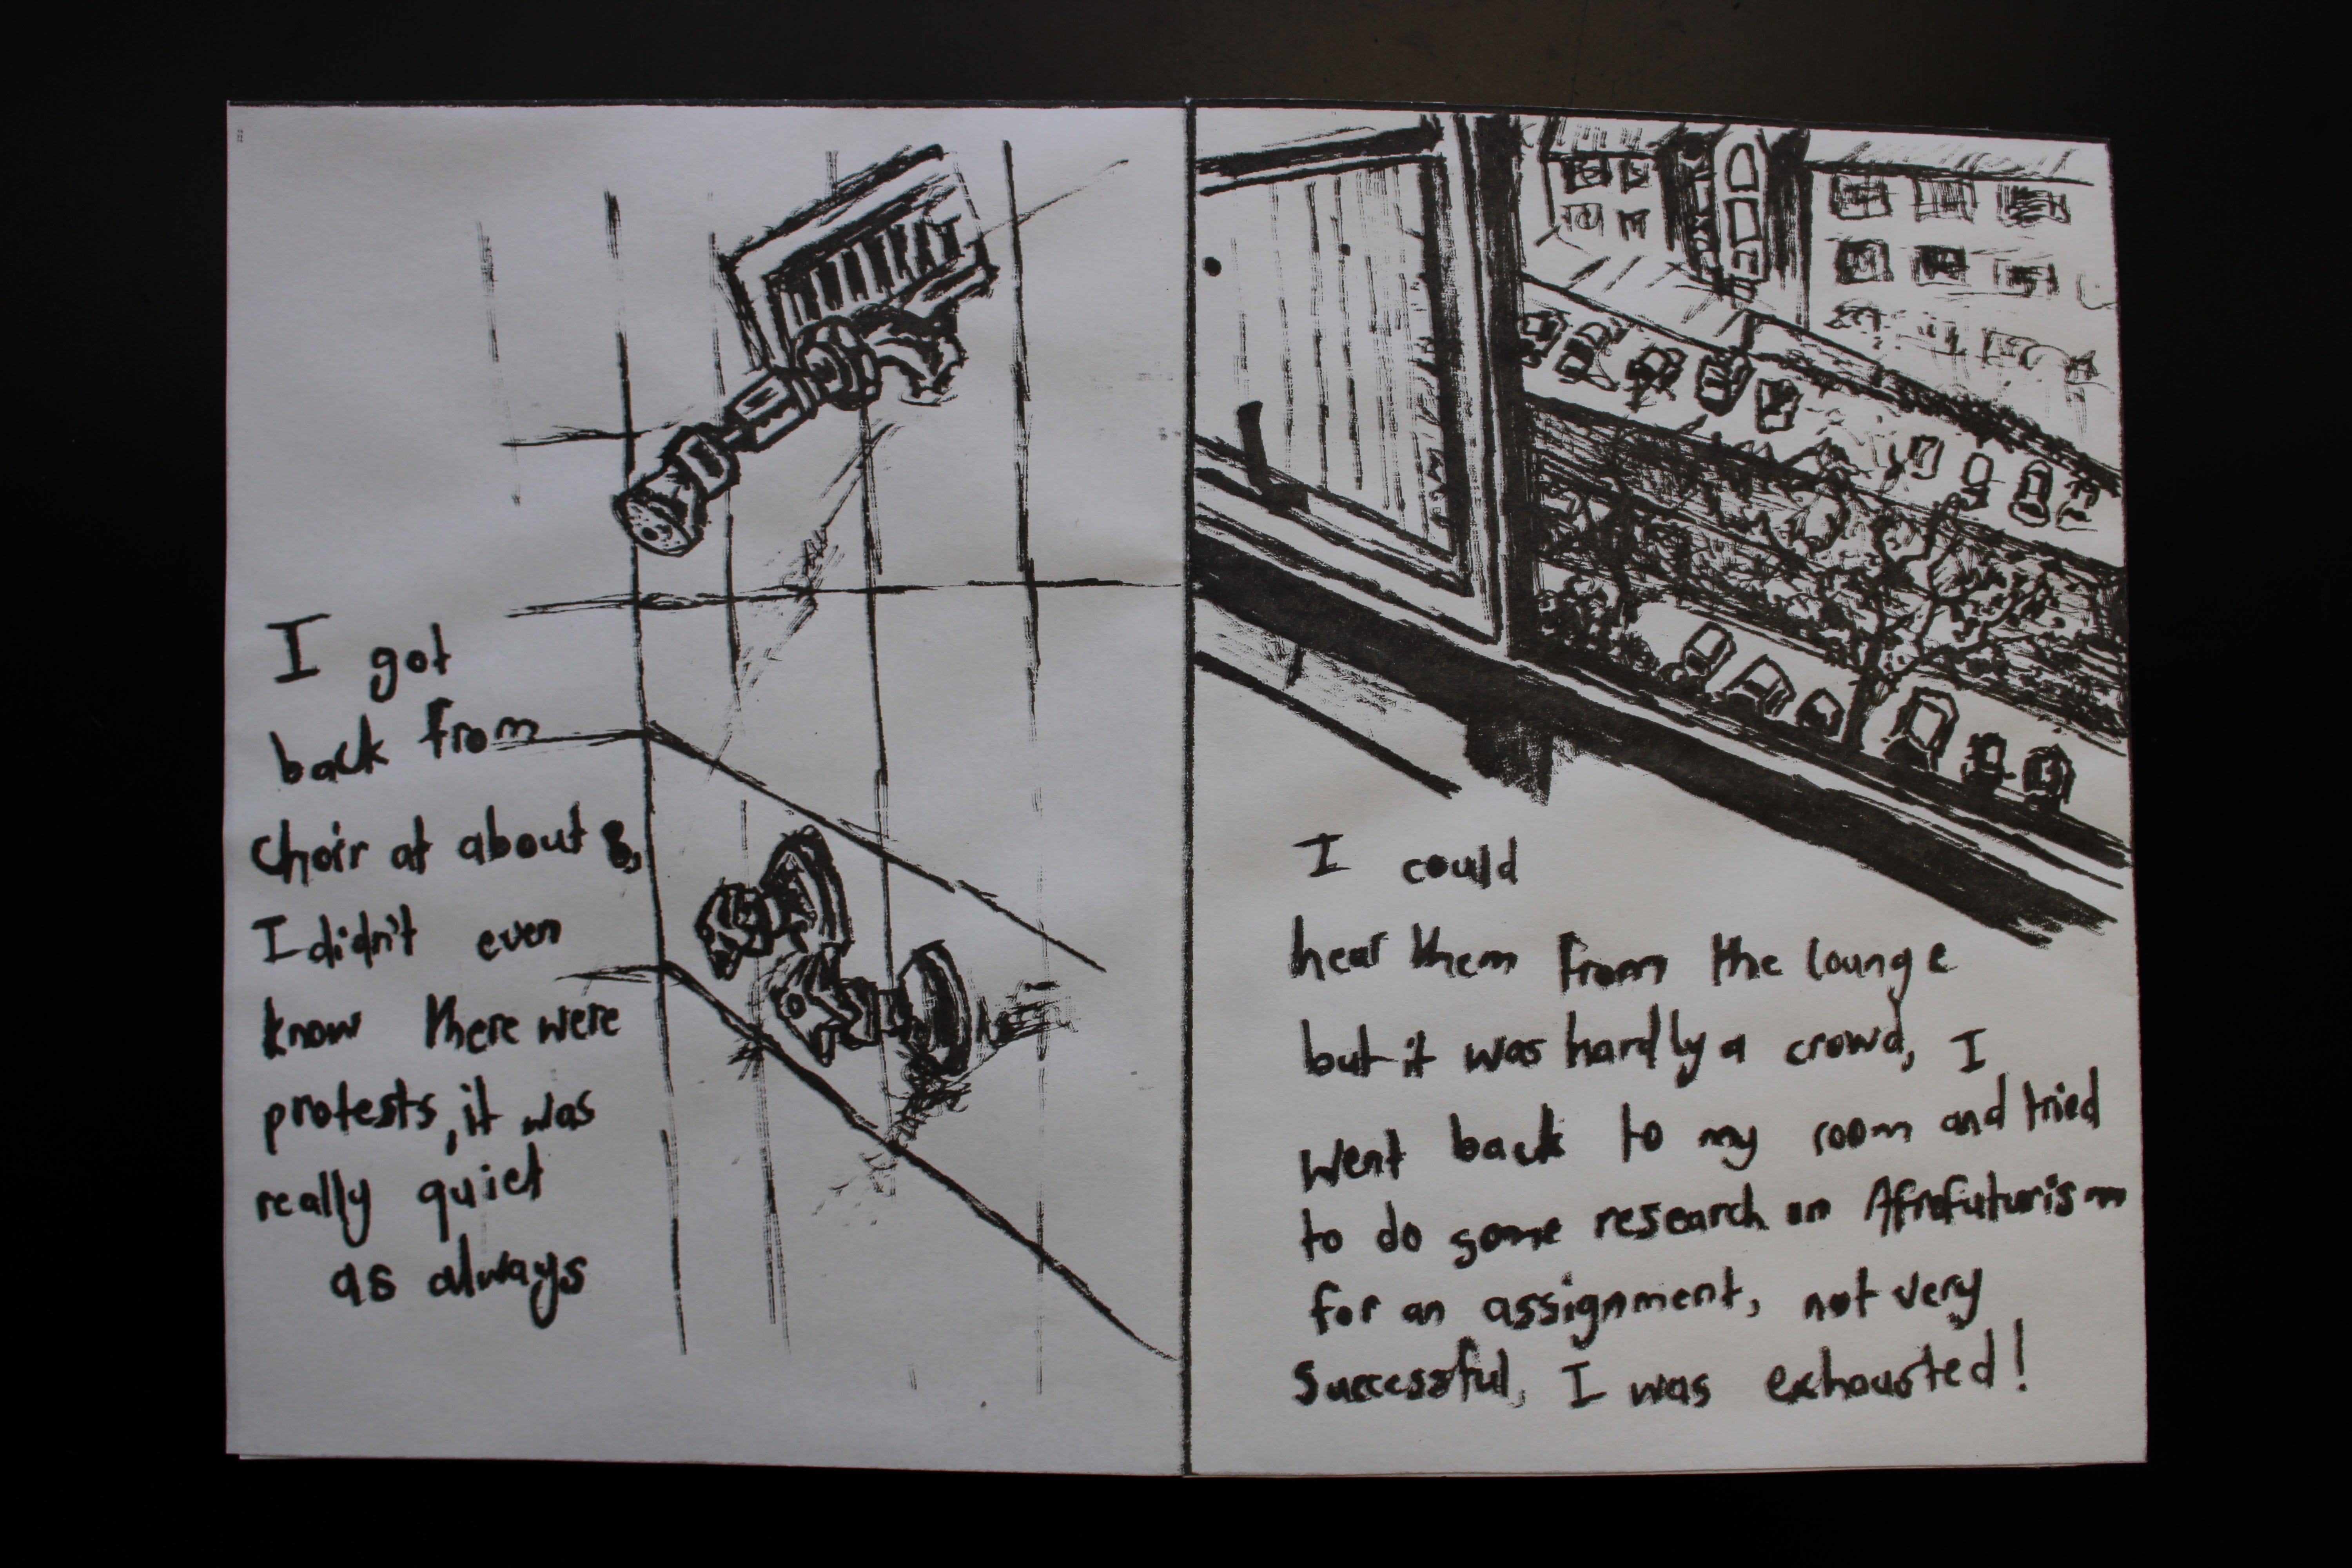 I got
back from
choir at about 8,
I didn't even
know there were
protests, it was
really quiet
as always
I could
hear them from the lounge
but it was hardly a crowd, I
went back to my room and tried
to do some research on Afrofuturism
for an assignment, not very
successful, I was exhausted!